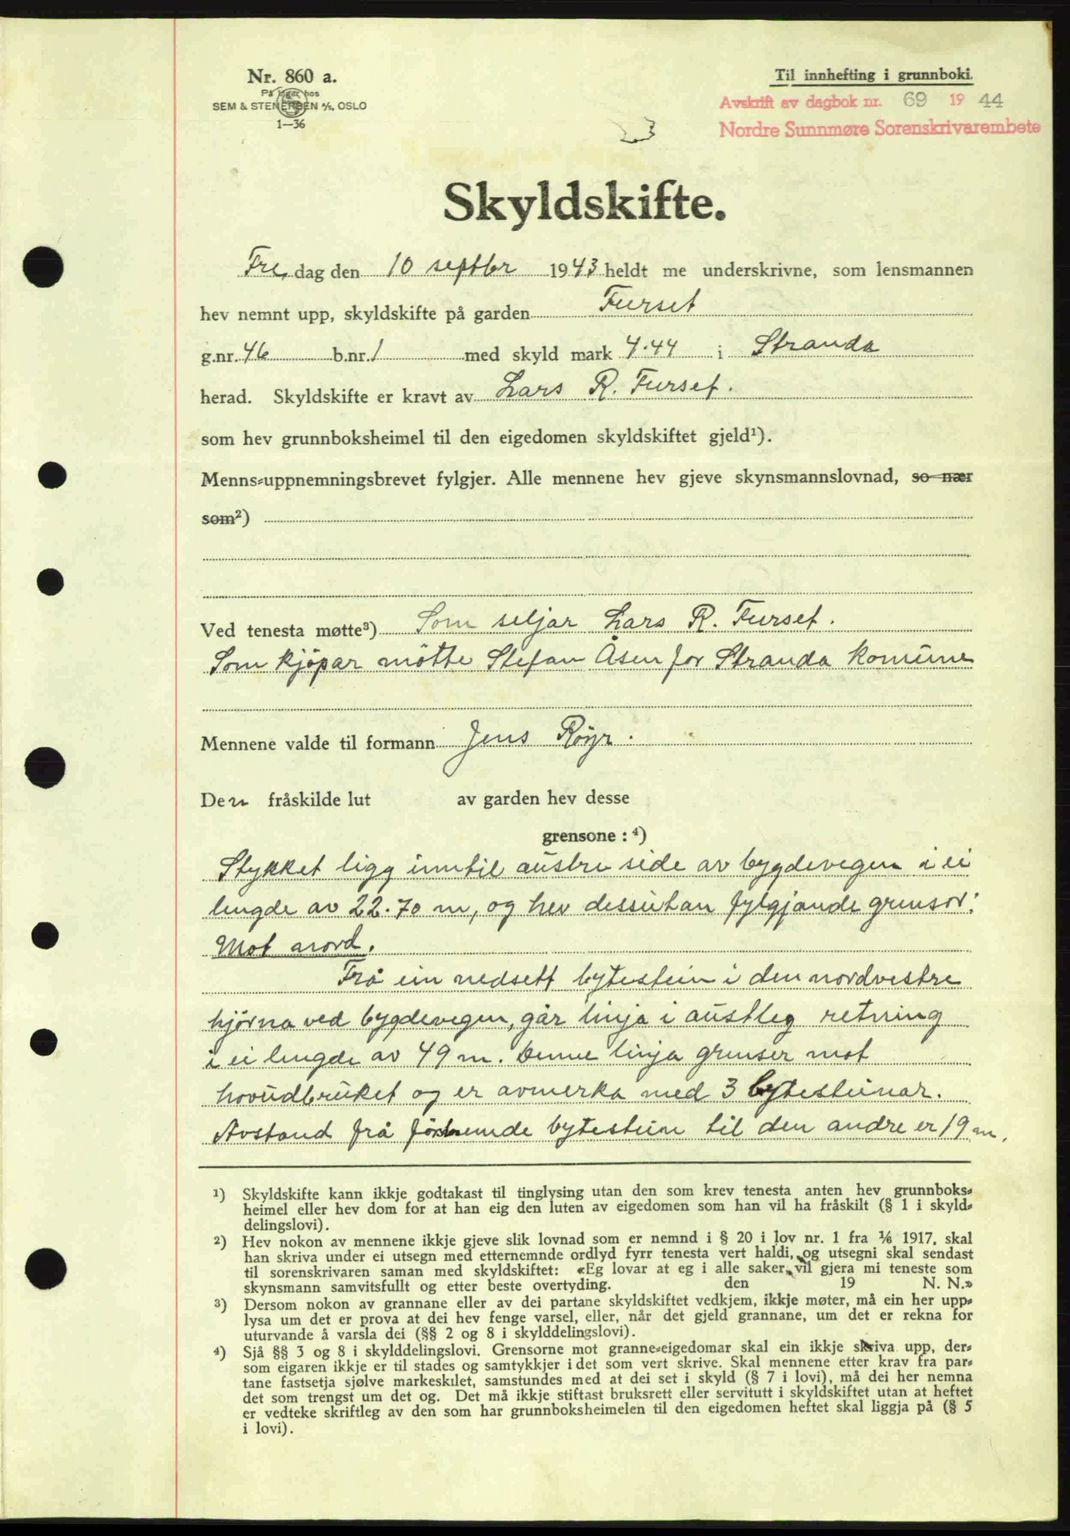 Nr. 860 a.
På lager hos
SEM & STENERSEN A/S, OSLO
1—36
Til innhefting i grunnboki.
Avskrift av dagbok nr. 69 19 44
Nordre Sunnmøre Sorenskrivarembete
Skyldskifte.
Fre dag den 10 septbr 1943 heldt me underskrivne, som lensmannen
hev nemnt upp, skyldskifte på garden Furset
g.nr. 46 b.nr. 1 med skyld mark 4.44 i Stranda
herad. Skyldskifte er kravt av Lars R. Furset.
som hev grunnboksheimel til den eigedomen skyldskiftet gjeld¹).
Menns-uppnemningsbrevet fylgjer. Alle mennene hev gjeve skynsmannslovnad, so nær
som²)
Ved tenesta møtte³) Som seljar Lars R. Furset.
Som kjøpar møtte Stefan Åsen for Stranda komune
Mennene valde til formann Jens Røyr.
Den fråskilde lut av garden hev desse
grensone : ⁴)
Stykket ligg inntil austre side av bygdevegen i ei
lengde av 22.70 m, og hev dessutan fylgjande grensor:
Mot nord.
Frå ein nedsett bytestein i den nordvestre
hjørna ved bygdevegen, går linja i austleg retning
i ei lengde av 49 m. Denne linja grenser mot
hovudbruket og er avmerka med 3 bytesteinar.
Avstand frå førnemde bytestein til den andre er 19 m.
¹) Skyldskifte kann ikkje godtakast til tinglysing utan den som krev tenesta anten hev grunnboks-
heimel eller hev dom for at han eig den luten av eigedomen som han vil ha fråskilt (§ 1 i skyld-
delingslovi).
²) Hev nokon av mennene ikkje gjeve slik lovnad som er nemnd i § 20 i lov nr. 1 fra 1/6 1917, skal
han skriva under ei utsegn med etternemnde ordlyd fyrr tenesta vert haldi, og utsegni skal sendast
til sorenskrivaren saman med skyldskiftet: «Eg lovar at eg i alle saker vil gjera mi teneste som
skynsmann samvitsfullt og etter beste overtyding. den 19 N. N.»
³) Dersom nokon av grannane eller av dei partane skyldskiftet vedkjem, ikkje møter, må ein her upp-
lysa um det er prova at dei hev fenge varsel, eller, når det gjeld grannane, um det er rekna for
uturvande å varsla dei (§§ 2 og 8 i skylddelingslovi).
⁴) Sjå §§ 3 og 8 i skylddelingslovi. Grensorne mot granne-eigedomar skal ein ikkje skriva upp, der-
som eigaren ikkje er til stades og samtykkjer i det som vert skrive. Skal mennene etter krav fra par-
tane fastsetja sjølve markeskilet, samstundes med at dei set i skyld (§ 7 i lovi), må dei her nemna
det som trengst um det og. Det må ikkje stiftast bruksrett eller servitutt i skyldskiftet utan at heftet
er vedteke skriftleg av den som har grunnboksheimelen til den eigedomen heftet skal liggja på (§ 5
i lovi).